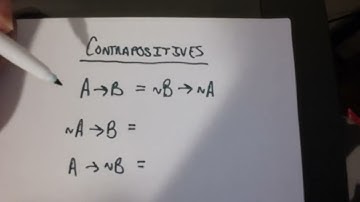 CONTRAPOSITIVES
A→B = ~B→~A
~A→B =
A→~B =